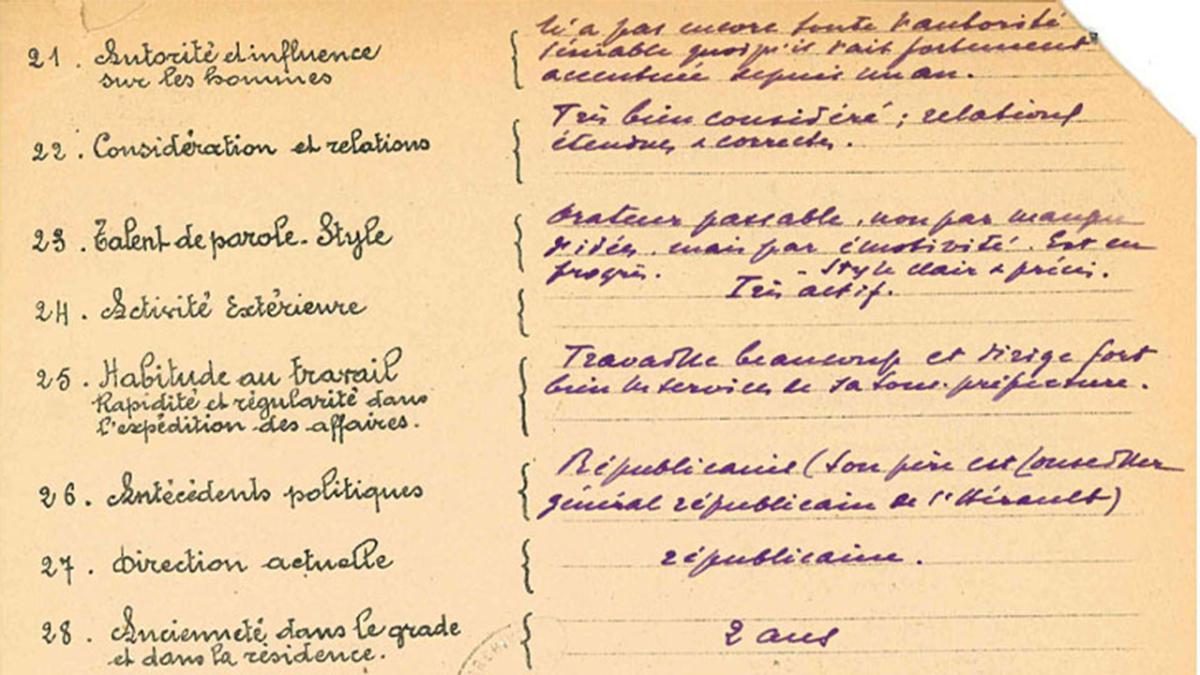 21. Autorité et influence
sur les hommes
N'a pas encore toute l'autorité
désirable quoiqu'il l'ait fortement
accentuée depuis un an.
22. Considération et relations
Très bien considéré ; relations
étendues & correctes.
23. Talent de parole. Style
Orateur passable, non par manque
d'idées, mais par émotivité. Est en
progrès. - Style clair & précis.
24. Activité Extérieure
Très actif.
25. Habitude au travail
Rapidité et régularité dans
l'expédition des affaires.
Travaille beaucoup et dirige fort
bien les services de sa sous-préfecture.
26. Antécédents politiques
Républicains (Son père est Conseiller
général républicain de l'Hérault)
27. Direction actuelle
républicaine.
28. Ancienneté dans le grade
et dans la résidence.
2 ans